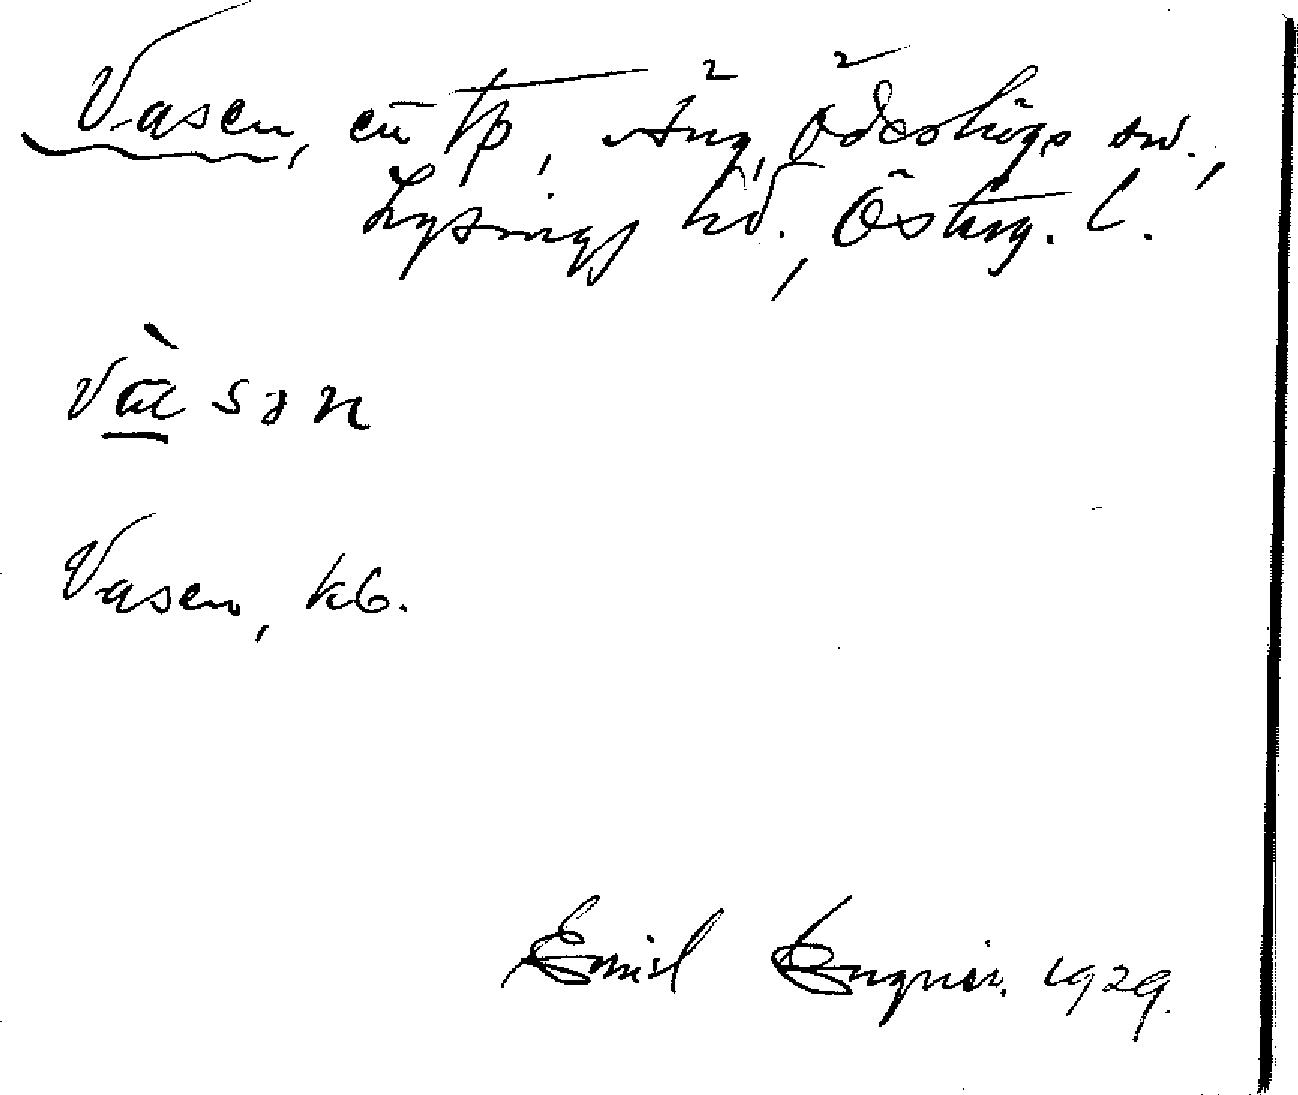 Vasen, en tp, Äng, Ödeshögs sn.,
Lysings hd., Österg. l.
vàsən
Vasen, kb.
Emil 1929.